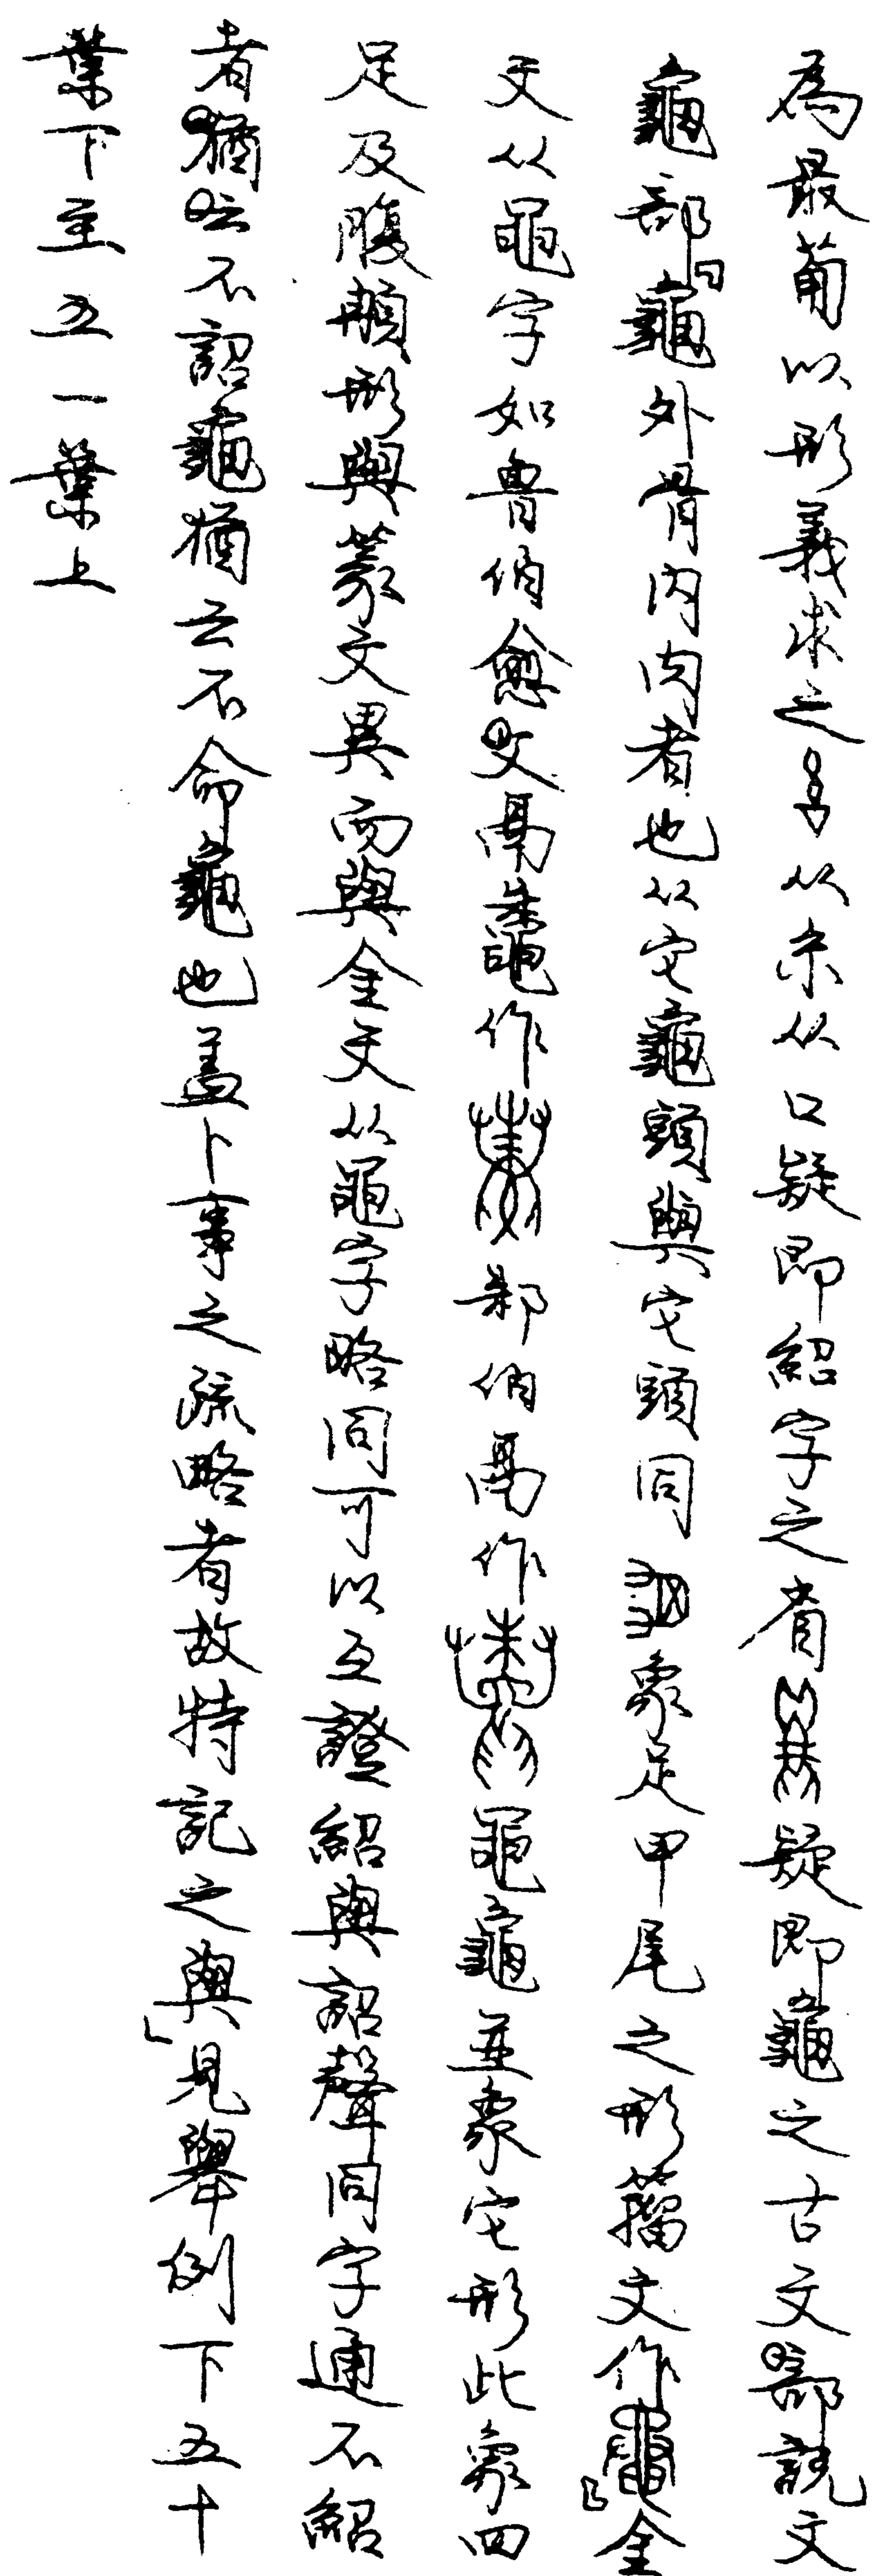 為最葡以形義求之从糸从口疑即紹字之省疑即龜之古文說文
龜部龜外骨內肉者也从它龜頭與它頭同象足甲尾之形籀文作金
文从黽字如魯伯愈父鬲鼄作邾伯鬲作黽龜並象它形此象四
足及腹䫇形與篆文異而與金文从黽字略同可以互證紹與詔聲同字通不紹
者猶云不詔龜猶云不命龜也蓋卜事之疏略者故特記之與」見舉例下五十
葉下至五一葉上